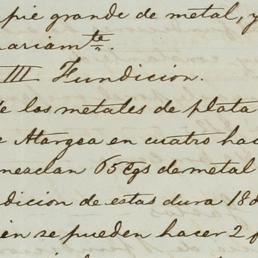 pie grande de metal, y
ariamte.
III Fundicion.
de los metales de plata
Atargea en cuatro hac
mezclan 65 Cgs de metal
dicion de estas dura 18 d
en se pueden hacer 2 f